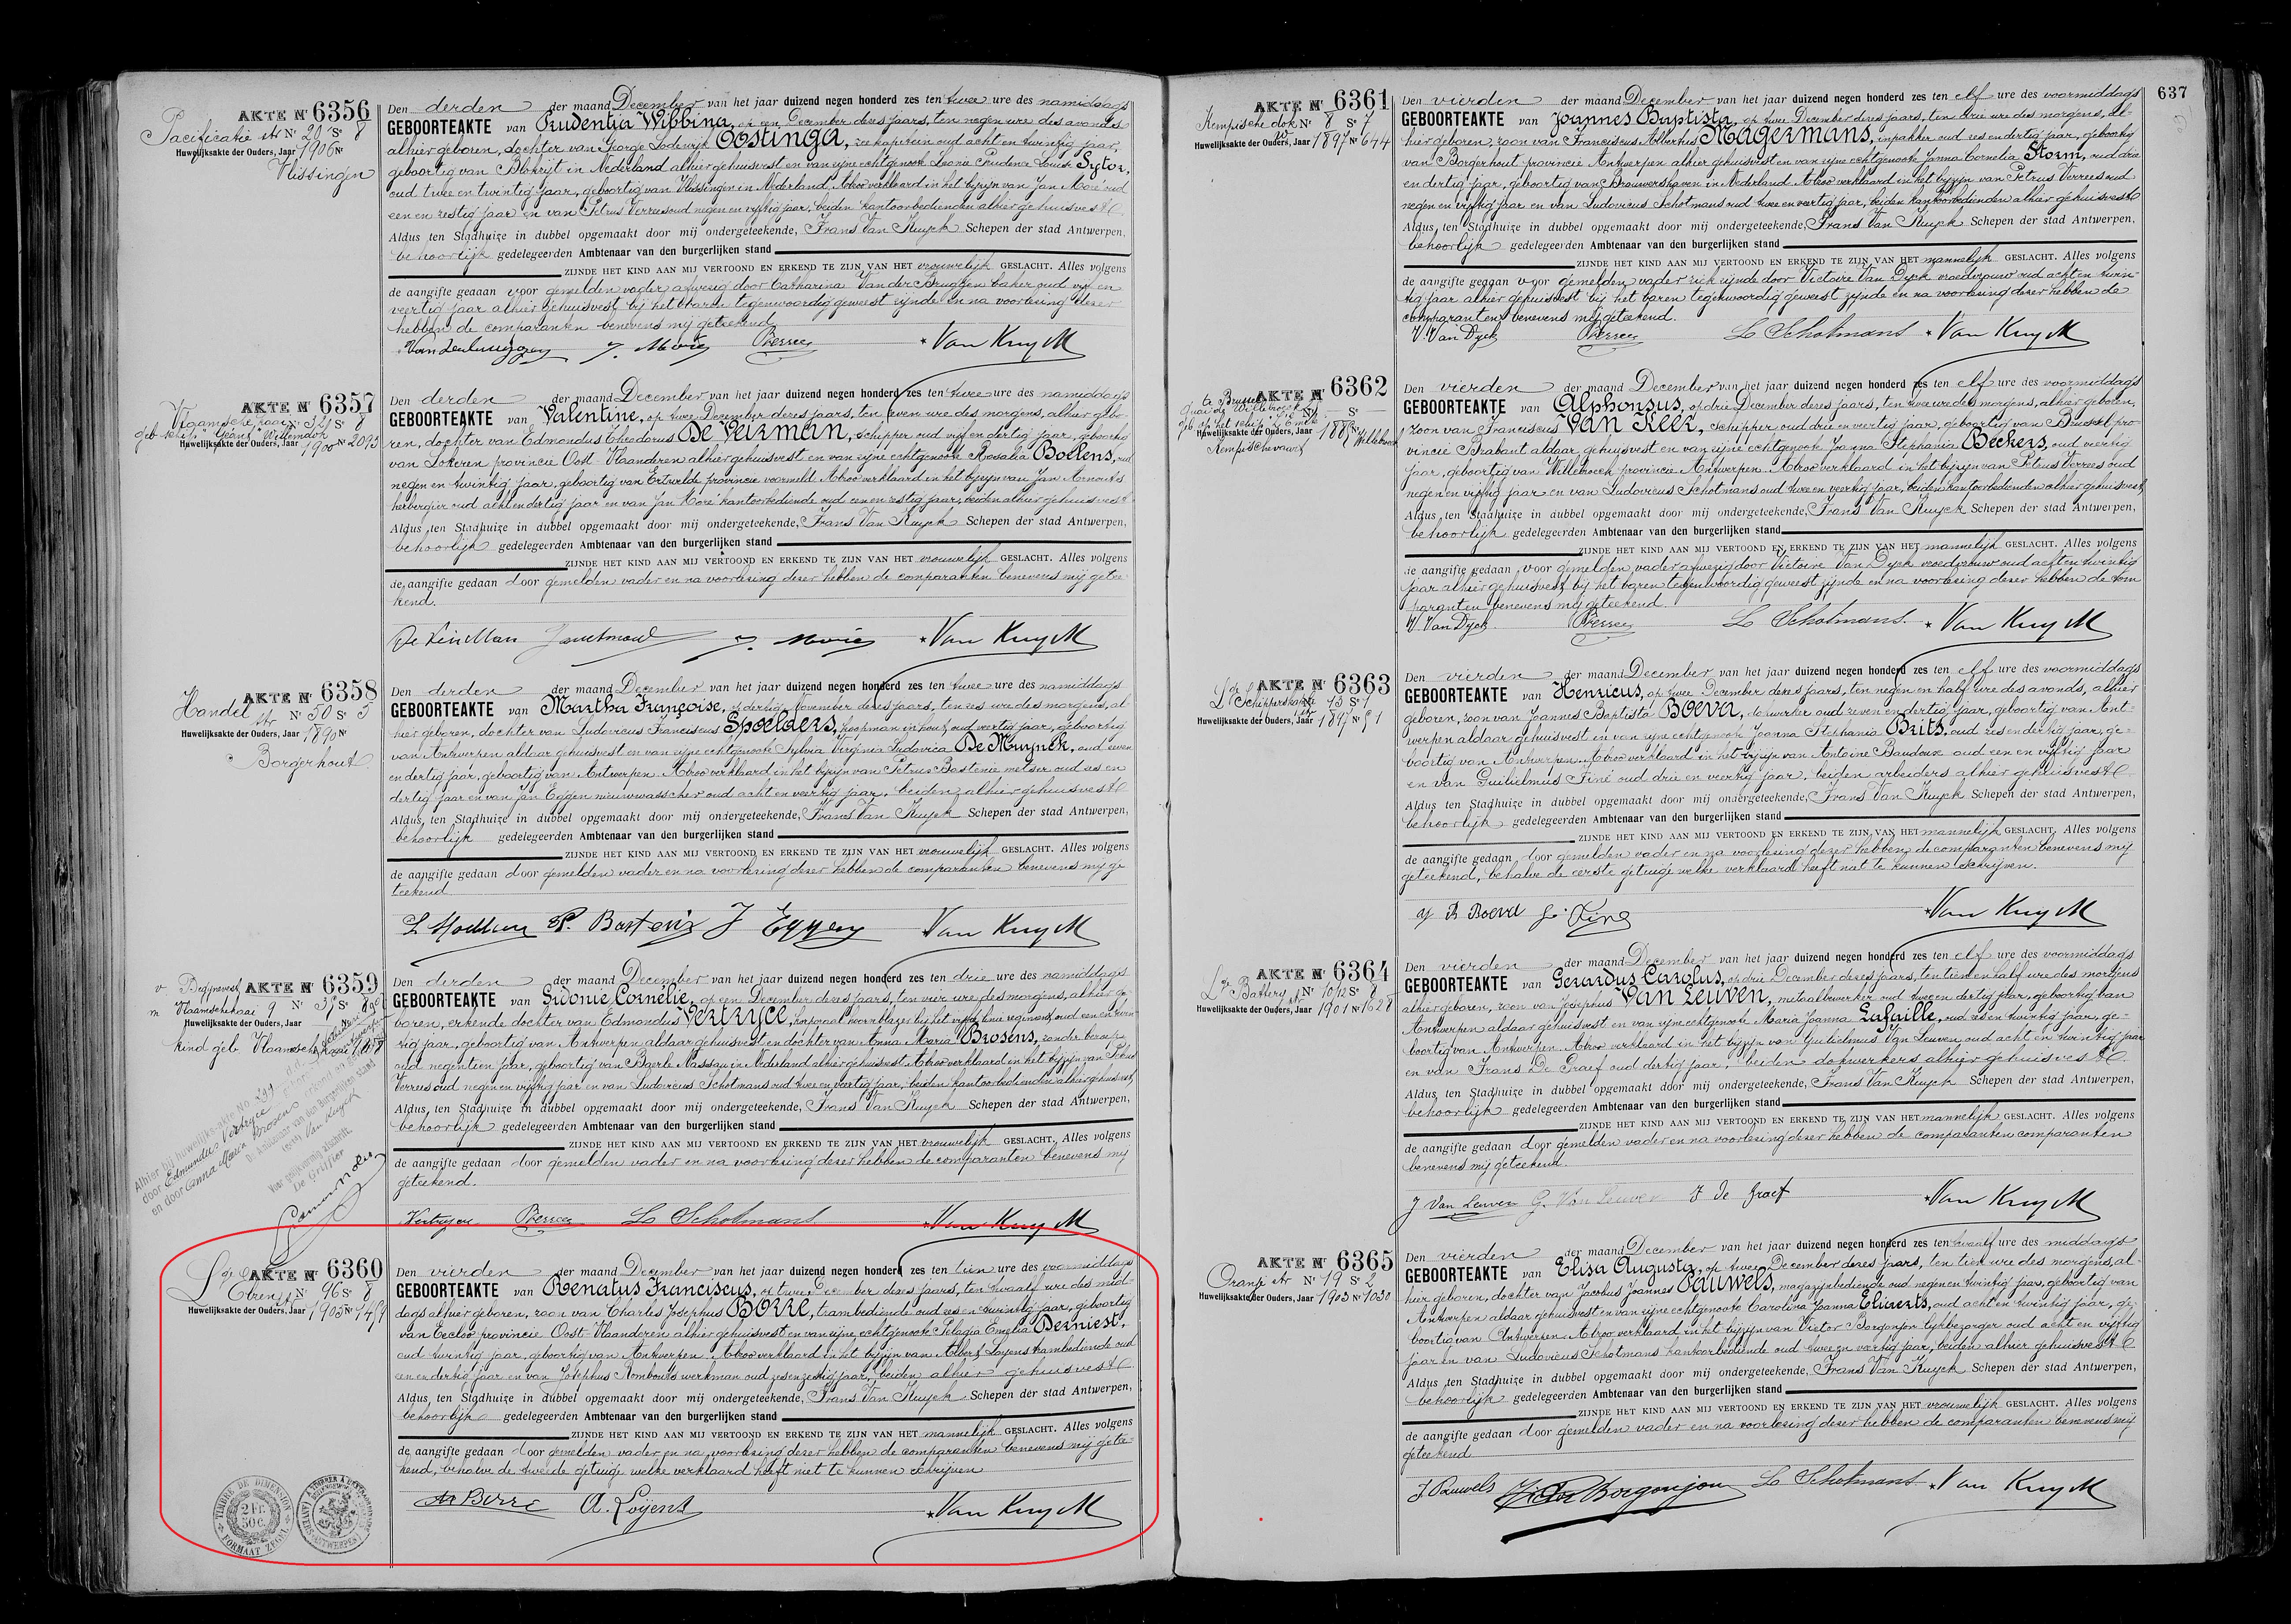 AKTE Nr 6356
Pacificatie str Nr 20 Sie 8
Huwelijksakte der Ouders, Jaar 1906 Nr
Vlissingen
Den derden der maand December van het jaar duizend negen honderd zes ten twee ure des namiddags
GEBOORTEAKTE van Prudentia Wibbina, op een December dezes jaars, ten negen ure des avonds
alhier geboren, dochter van George Lodewijk Oostinga, zee kapitein oud acht en twintig jaar,
geboortig van Blokzijl in Nederland alhier gehuisvest en van zijne echtgenoote Leonie Prudence Louise Sytor,
oud twee en twintig jaar, geboortig van Vlissingen in Nederland. Alzoo verklaard in het bijzijn van Jan Moïe oud
een en zestig jaar en van Petrus Verrees oud negen en vijftig jaar, beiden kantoorbedienden alhier gehuisvest
Aldus ten Stadhuize in dubbel opgemaakt door mij ondergeteekende, Frans Van Kuyck Schepen der stad Antwerpen,
behoorlijk gedelegeerden Ambtenaar van den burgerlijken stand
ZIJNDE HET KIND AAN MIJ VERTOOND EN ERKEND TE ZIJN VAN HET vrouwelijk GESLACHT. Alles volgens
de aangifte gedaan voor gemelden vader afwezig door Catharina Van der Bruggen baker oud vijf en
veertig jaar alhier gehuisvest bij het baren tegenwoordig geweest zijnde en na voorlezing dezer
hebben de comparanten benevens mij geteekend
Verrees Van Kuyck
AKTE Nr 6357
Vlaamsche kaai Nr 321 Sie 8
Huwelijksakte der Ouders, Jaar 1900 Nr 2093
Den derden der maand December van het jaar duizend negen honderd zes ten twee ure des namiddags
GEBOORTEAKTE van Valentine, op twee December dezes jaars, ten zeven ure des morgens, alhier gebo-
ren, dochter van Edmondus Theodorus De Veirman, schipper oud vijf en dertig jaar, geboortig
van Lokeren provincie Oost-Vlaanderen alhier gehuisvest en van zijne echtgenoote Rosalia Boelens, oud
negen en twintig jaar, geboortig van Ertvelde provincie voormeld. Alzoo verklaard in het bijzijn van Jan Arnouts
herbergier oud acht en dertig jaar en van Jan Moïe kantoorbediende oud een en zestig jaar, beiden alhier gehuisvest
Aldus ten Stadhuize in dubbel opgemaakt door mij ondergeteekende, Frans Van Kuyck Schepen der stad Antwerpen,
behoorlijk gedelegeerden Ambtenaar van den burgerlijken stand
ZIJNDE HET KIND AAN MIJ VERTOOND EN ERKEND TE ZIJN VAN HET vrouwelijk GESLACHT. Alles volgens
de aangifte gedaan door gemelden vader en na voorlezing dezer hebben de comparanten benevens mij getee-
kend.
Van Kuyck
AKTE Nr 6358
Handel str Nr 50 Sie 5
Huwelijksakte der Ouders, Jaar 1890 Nr
Borgerhout
Den derden der maand December van het jaar duizend negen honderd zes ten twee ure des namiddags
GEBOORTEAKTE van Martha Françoise, op dertig November dezes jaars, ten zes ure des morgens, al-
hier geboren, dochter van Ludovicus Franciscus Spoelders, koopman in hout, oud veertig jaar, geboortig
van Antwerpen aldaar gehuisvest en van zijne echtgenoote Sylvia Virginia Ludovica De Muynck, oud zeven
en dertig jaar, geboortig van Antwerpen. Alzoo verklaard in het bijzijn van Petrus Bastenie metser oud zes en
dertig jaar en van Jan Eggen nieuwwasscher oud acht en veertig jaar, beiden alhier gehuisvest
Aldus ten Stadhuize in dubbel opgemaakt door mij ondergeteekende, Frans Van Kuyck Schepen der stad Antwerpen,
behoorlijk gedelegeerden Ambtenaar van den burgerlijken stand
ZIJNDE HET KIND AAN MIJ VERTOOND EN ERKEND TE ZIJN VAN HET vrouwelijk GESLACHT. Alles volgens
de aangifte gedaan door gemelden vader en na voorlezing dezer hebben de comparanten benevens mij ge
teekend
P. Bastenie J Eggen Van Kuyck
AKTE Nr 6359
v Begijnevest Nr 39 Sie
m Vlaamschekaai 9
Huwelijksakte der Ouders, Jaar
kind geb. Vlaamschekaai
Den derden der maand December van het jaar duizend negen honderd zes ten drie ure des namiddags
GEBOORTEAKTE van Sidonie Cornélie, op een December dezes jaars, ten vier ure des morgens, alhier ge-
boren, erkende dochter van Edmondus Vertryce, korporaal hoornblazer bij het vijfde linie regiment, oud een en twin
tig jaar, geboortig van Antwerpen aldaar gehuisvest en dochter van Anna Maria Brosens, zonder beroep
oud negentien jaar, geboortig van Baerle Nassau in Nederland alhier gehuisvest. Alzoo verklaard in het bijzijn van Petrus
Verrees oud negen en vijftig jaar en van Ludovicus Schotmans oud twee en veertig jaar, beiden kantoorbedienden alhier gehuisvest
Aldus ten Stadhuize in dubbel opgemaakt door mij ondergeteekende, Frans Van Kuyck Schepen der stad Antwerpen,
behoorlijk gedelegeerden Ambtenaar van den burgerlijken stand
ZIJNDE HET KIND AAN MIJ VERTOOND EN ERKEND TE ZIJN VAN HET vrouwelijk GESLACHT. Alles volgens
de aangifte gedaan door gemelden vader en na voorlezing dezer hebben de comparanten benevens mij
geteekend.
Alhier bij huwelijks-akte No 299
door Edmundus Vertryce
en door Anna Maria Brosens
De Ambtenaar van den Burgerlijken stand
(get) Van Kuyck
Voor gelijkvormig afschrift
De Griffier
Verrees L. Schotmans Van Kuyck
AKTE Nr 6360
Nr 96 Sie 8
Huwelijksakte der Ouders, Jaar 1905 Nr 1459
Den vierden der maand December van het jaar duizend negen honderd zes ten tien ure des voormiddags
GEBOORTEAKTE van Renatus Franciscus, op twee December dezes jaars, ten twaalf ure des mid-
dags alhier geboren, zoon van Charles Josephus Borre, trambediende oud zes en twintig jaar, geboortig
van Eecloo provincie Oost-Vlaanderen alhier gehuisvest en van zijne echtgenoote Pelagia Emelia Derniest,
oud twintig jaar, geboortig van Antwerpen. Alzoo verklaard in het bijzijn van Albert Loyens trambediende oud
een en dertig jaar en van Josephus Rombouts werkman oud zes en zestig jaar, beiden alhier gehuisvest
Aldus ten Stadhuize in dubbel opgemaakt door mij ondergeteekende, Frans Van Kuyck Schepen der stad Antwerpen,
behoorlijk gedelegeerden Ambtenaar van den burgerlijken stand
ZIJNDE HET KIND AAN MIJ VERTOOND EN ERKEND TE ZIJN VAN HET mannelijk GESLACHT. Alles volgens
de aangifte gedaan door gemelden vader en na voorlezing dezer hebben de comparanten benevens mij getee-
kend, behalve de tweede getuige welke verklaard heeft niet te kunnen schrijven
TIMBRE DE DIMENSION
2 Fr. 50 C.
FORMAAT ZEGEL
Borre A. Loyens Van Kuyck
637
AKTE Nr 6361
Kempische dok Nr 8 Sie 7
Huwelijksakte der Ouders, Jaar 1897 Nr 644
Den vierden der maand December van het jaar duizend negen honderd zes ten elf ure des voormiddags
GEBOORTEAKTE van Joannes Baptista, op twee December dezes jaars, ten drie ure des morgens, al-
hier geboren, zoon van Franciscus Albertus Magermans, inpakker oud zes en dertig jaar, geboortig
van Borgerhout provincie Antwerpen alhier gehuisvest en van zijne echtgenoote Janna Cornelia Storm, oud drie
en dertig jaar, geboortig van Brouwershaven in Nederland. Alzoo verklaard in het bijzijn van Petrus Verrees oud
negen en vijftig jaar en van Ludovicus Schotmans oud twee en veertig jaar, beiden kantoorbedienden alhier gehuisvest
Aldus ten Stadhuize in dubbel opgemaakt door mij ondergeteekende, Frans Van Kuyck Schepen der stad Antwerpen,
behoorlijk gedelegeerden Ambtenaar van den burgerlijken stand
ZIJNDE HET KIND AAN MIJ VERTOOND EN ERKEND TE ZIJN VAN HET mannelijk GESLACHT. Alles volgens
de aangifte gedaan voor gemelden vader ziek zijnde door Victoire Van Dyck vroedvrouw oud acht en twin-
tig jaar alhier gehuisvest bij het baren tegenwoordig geweest zijnde en na voorlezing dezer hebben de
comparanten benevens mij geteekend.
V. Van Dyck Verrees L Schotmans Van Kuyck
AKTE Nr 6362
te Brussel
Huwelijksakte der Ouders, Jaar
Den vierden der maand December van het jaar duizend negen honderd zes ten elf ure des voormiddags
GEBOORTEAKTE van Alphonsus, op drie December dezes jaars, ten twee ure des morgens, alhier geboren,
zoon van Franciscus Van Keer, schipper oud drie en veertig jaar, geboortig van Brussel pro-
vincie Brabant aldaar gehuisvest en van zijne echtgenoote Joanna Stephania Beckers, oud veertig
jaar, geboortig van Willebroeck provincie Antwerpen. Alzoo verklaard in het bijzijn van Petrus Verrees oud
negen en vijftig jaar en van Ludovicus Schotmans oud twee en veertig jaar, beiden kantoorbedienden alhier gehuisvest
Aldus ten Stadhuize in dubbel opgemaakt door mij ondergeteekende, Frans Van Kuyck Schepen der stad Antwerpen,
behoorlijk gedelegeerden Ambtenaar van den burgerlijken stand
ZIJNDE HET KIND AAN MIJ VERTOOND EN ERKEND TE ZIJN VAN HET mannelijk GESLACHT. Alles volgens
de aangifte gedaan voor gemelden vader afwezig door Victoire Van Dyck vroedvrouw oud acht en twintig
jaar alhier gehuisvest bij het baren tegenwoordig geweest zijnde en na voorlezing dezer hebben de com
paranten benevens mij geteekend.
V. Van Dyck Verrees L Schotmans. Van Kuyck
AKTE Nr 6363
Lge Schipperskapel Nr 13 Sie 1
Huwelijksakte der Ouders, Jaar 1897 Nr 91
Den vierden der maand December van het jaar duizend negen honderd zes ten elf ure des voormiddags
GEBOORTEAKTE van Henricus, op twee December dezes jaars, ten negen en half ure des avonds, alhier
geboren, zoon van Joannes Baptista Boeva, dokwerker oud zeven en dertig jaar, geboortig van Ant-
werpen aldaar gehuisvest en van zijne echtgenoote Joanna Stephania Brits, oud zes en dertig jaar, ge-
boortig van Antwerpen. Alzoo verklaard in het bijzijn van Antoine Baudoux oud een en vijftig jaar
en van Guilielmus Finé oud drie en veertig jaar, beiden arbeiders alhier gehuisvest
Aldus ten Stadhuize in dubbel opgemaakt door mij ondergeteekende, Frans Van Kuyck Schepen der stad Antwerpen,
behoorlijk gedelegeerden Ambtenaar van den burgerlijken stand
ZIJNDE HET KIND AAN MIJ VERTOOND EN ERKEND TE ZIJN VAN HET mannelijk GESLACHT. Alles volgens
de aangifte gedaan door gemelden vader en na voorlezing dezer hebben de comparanten benevens mij
geteekend, behalve de eerste getuige welke verklaard heeft niet te kunnen schrijven.
Boeva Van Kuyck
AKTE Nr 6364
Lge Battery str Nr 10/12 Sie 8
Huwelijksakte der Ouders, Jaar 1901 Nr 1628
Den vierden der maand December van het jaar duizend negen honderd zes ten elf ure des voormiddags
GEBOORTEAKTE van Gerardus Carolus, op drie December dezes jaars, ten tien en half ure des morgens
alhier geboren, zoon van Josephus Van Leuven, metaalbewerker oud twee en dertig jaar, geboortig van
Antwerpen aldaar gehuisvest en van zijne echtgenoote Maria Joanna Lafaille, oud zes en twintig jaar, ge-
boortig van Antwerpen. Alzoo verklaard in het bijzijn van Guilielmus Van Leuven oud acht en twintig jaar
en van Frans De Graef oud dertig jaar, beiden dokwerkers alhier gehuisvest
Aldus ten Stadhuize in dubbel opgemaakt door mij ondergeteekende, Frans Van Kuyck Schepen der stad Antwerpen,
behoorlijk gedelegeerden Ambtenaar van den burgerlijken stand
ZIJNDE HET KIND AAN MIJ VERTOOND EN ERKEND TE ZIJN VAN HET mannelijk GESLACHT. Alles volgens
de aangifte gedaan door gemelden vader en na voorlezing dezer hebben de comparanten comparanten
benevens mij geteekend.
J Van Leuven G. Van Leuven F De Graef Van Kuyck
AKTE Nr 6365
Oranje str Nr 19 Sie 2
Huwelijksakte der Ouders, Jaar 1903 Nr 1030
Den vierden der maand December van het jaar duizend negen honderd zes ten twaalf ure des middags
GEBOORTEAKTE van Elisa Augusta, op twee December dezes jaars, ten tien ure des morgens, al-
hier geboren, dochter van Jacobus Joannes Pauwels, magazijnbediende oud negen en twintig jaar, geboortig van
Antwerpen aldaar gehuisvest en van zijne echtgenoote Carolina Joanna Eliverts, oud acht en twintig jaar, ge-
boortig van Antwerpen. Alzoo verklaard in het bijzijn van Victor Borgonjon lijkbezorger oud acht en vijftig
jaar en van Ludovicus Schotmans kantoorbediende oud twee en veertig jaar, beiden alhier gehuisvest
Aldus ten Stadhuize in dubbel opgemaakt door mij ondergeteekende, Frans Van Kuyck Schepen der stad Antwerpen,
behoorlijk gedelegeerden Ambtenaar van den burgerlijken stand
ZIJNDE HET KIND AAN MIJ VERTOOND EN ERKEND TE ZIJN VAN HET vrouwelijk GESLACHT. Alles volgens
de aangifte gedaan door gemelden vader en na voorlezing dezer hebben de comparanten benevens mij
geteekend
J. Pauwels Victor Borgonjon L Schotmans Van Kuyck